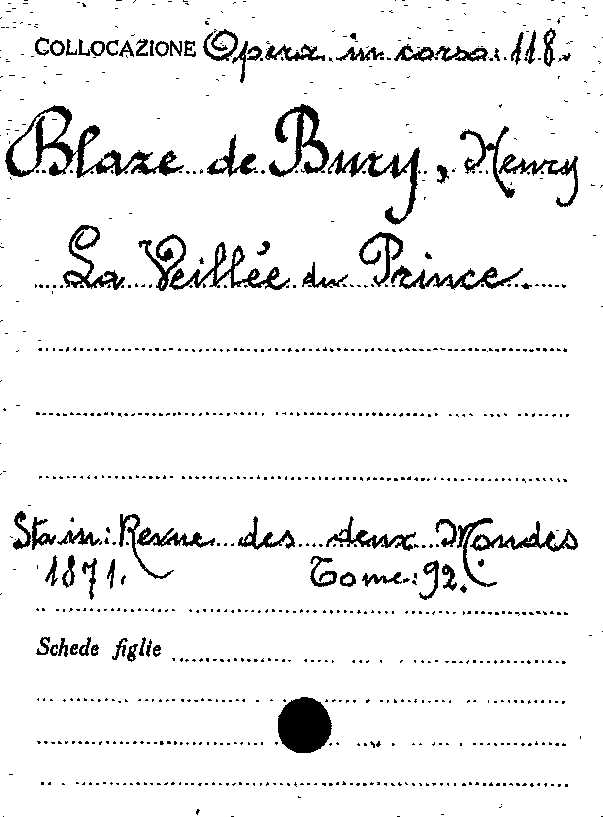 COLLOCAZIONE Opera in corso: 118.
Blaze de Bury, Henry
La Veillée du Prince.
Sta in: Revue des deux Mondes
1871. Tome: 92.
Schede figlie